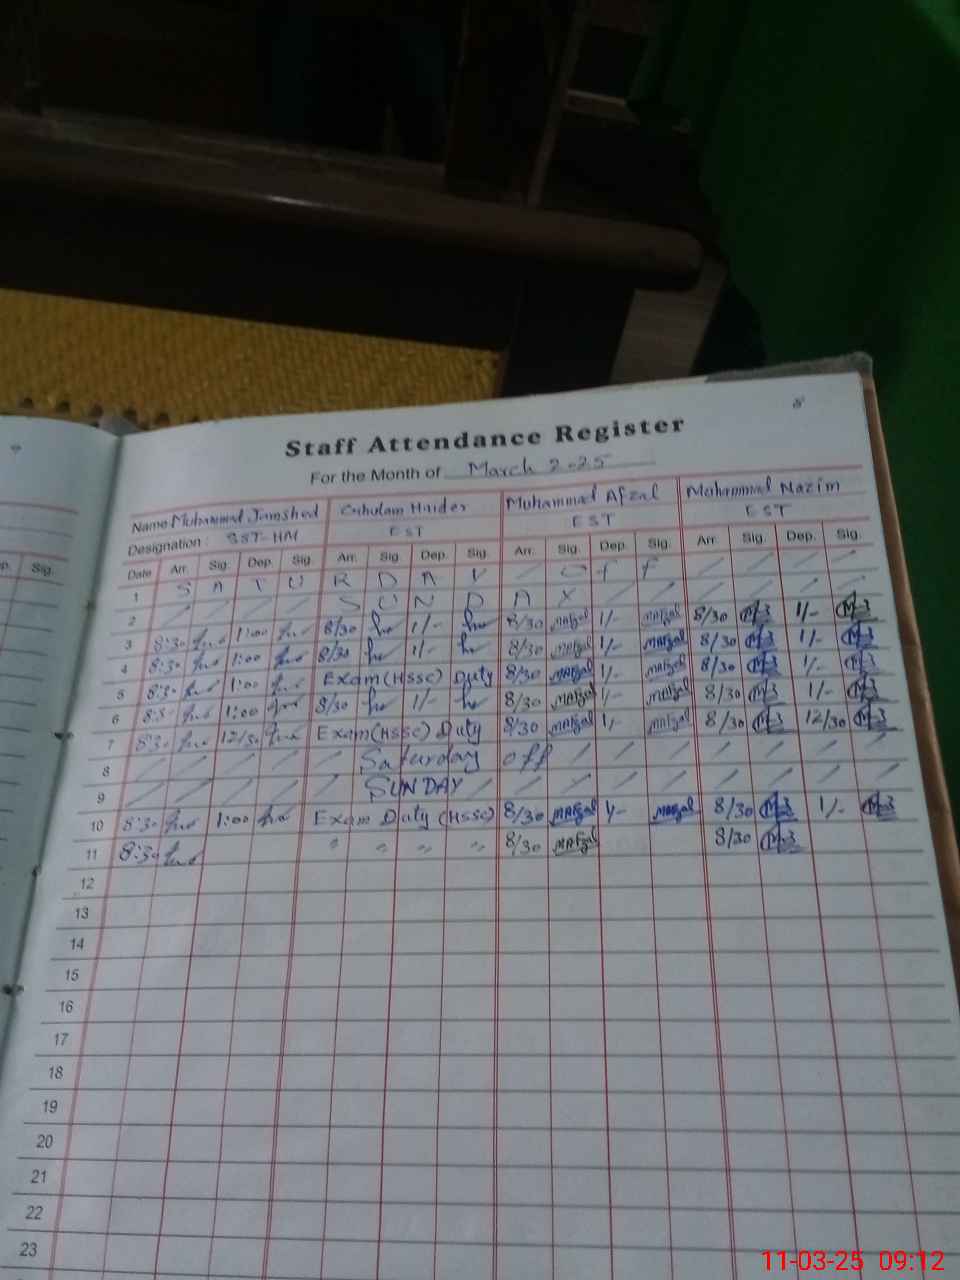 8
Staff Attendance Register
For the Month of March 2-25
Name: Muhammad Jamshed Ghulam Haider Muhammad Afzal Muhammad Nazim
Designation: SST-HM EST EST EST
p. Sig. Date Arr. Sig. Dep. Sig. Arr. Sig. Dep. Sig. Arr. Sig. Dep. Sig. Arr. Sig. Dep. Sig.
1 S A T U R D A Y O f f
2 S U N D A Y
3 8:30 1:00 8/30 1/- 8/30 MAfzal 1/- MAfzal 8/30 1/-
4 8:30 1:00 8/30 1/- 8/30 MAfzal 1/- MAfzal 8/30 1/-
5 8:30 1:00 Exam (HSSC) Duty 8/30 MAfzal 1/- MAfzal 8/30 1/-
6 8:30 1:00 8/30 1/- 8/30 MAfzal 1/- MAfzal 8/30 1/-
7 8:30 12/30 Exam (HSSC) Duty 8/30 MAfzal 1/- MAfzal 8/30 12/30
8 Saturday off
9 SUNDAY
10 8:30 1:00 Exam Duty (HSSC) 8/30 MAfzal 1/- MAfzal 8/30 1/-
11 8:30 " " " " 8/30 MAfzal 8/30
12
13
14
15
16
17
18
19
20
21
22
23
11-03-25 09:12